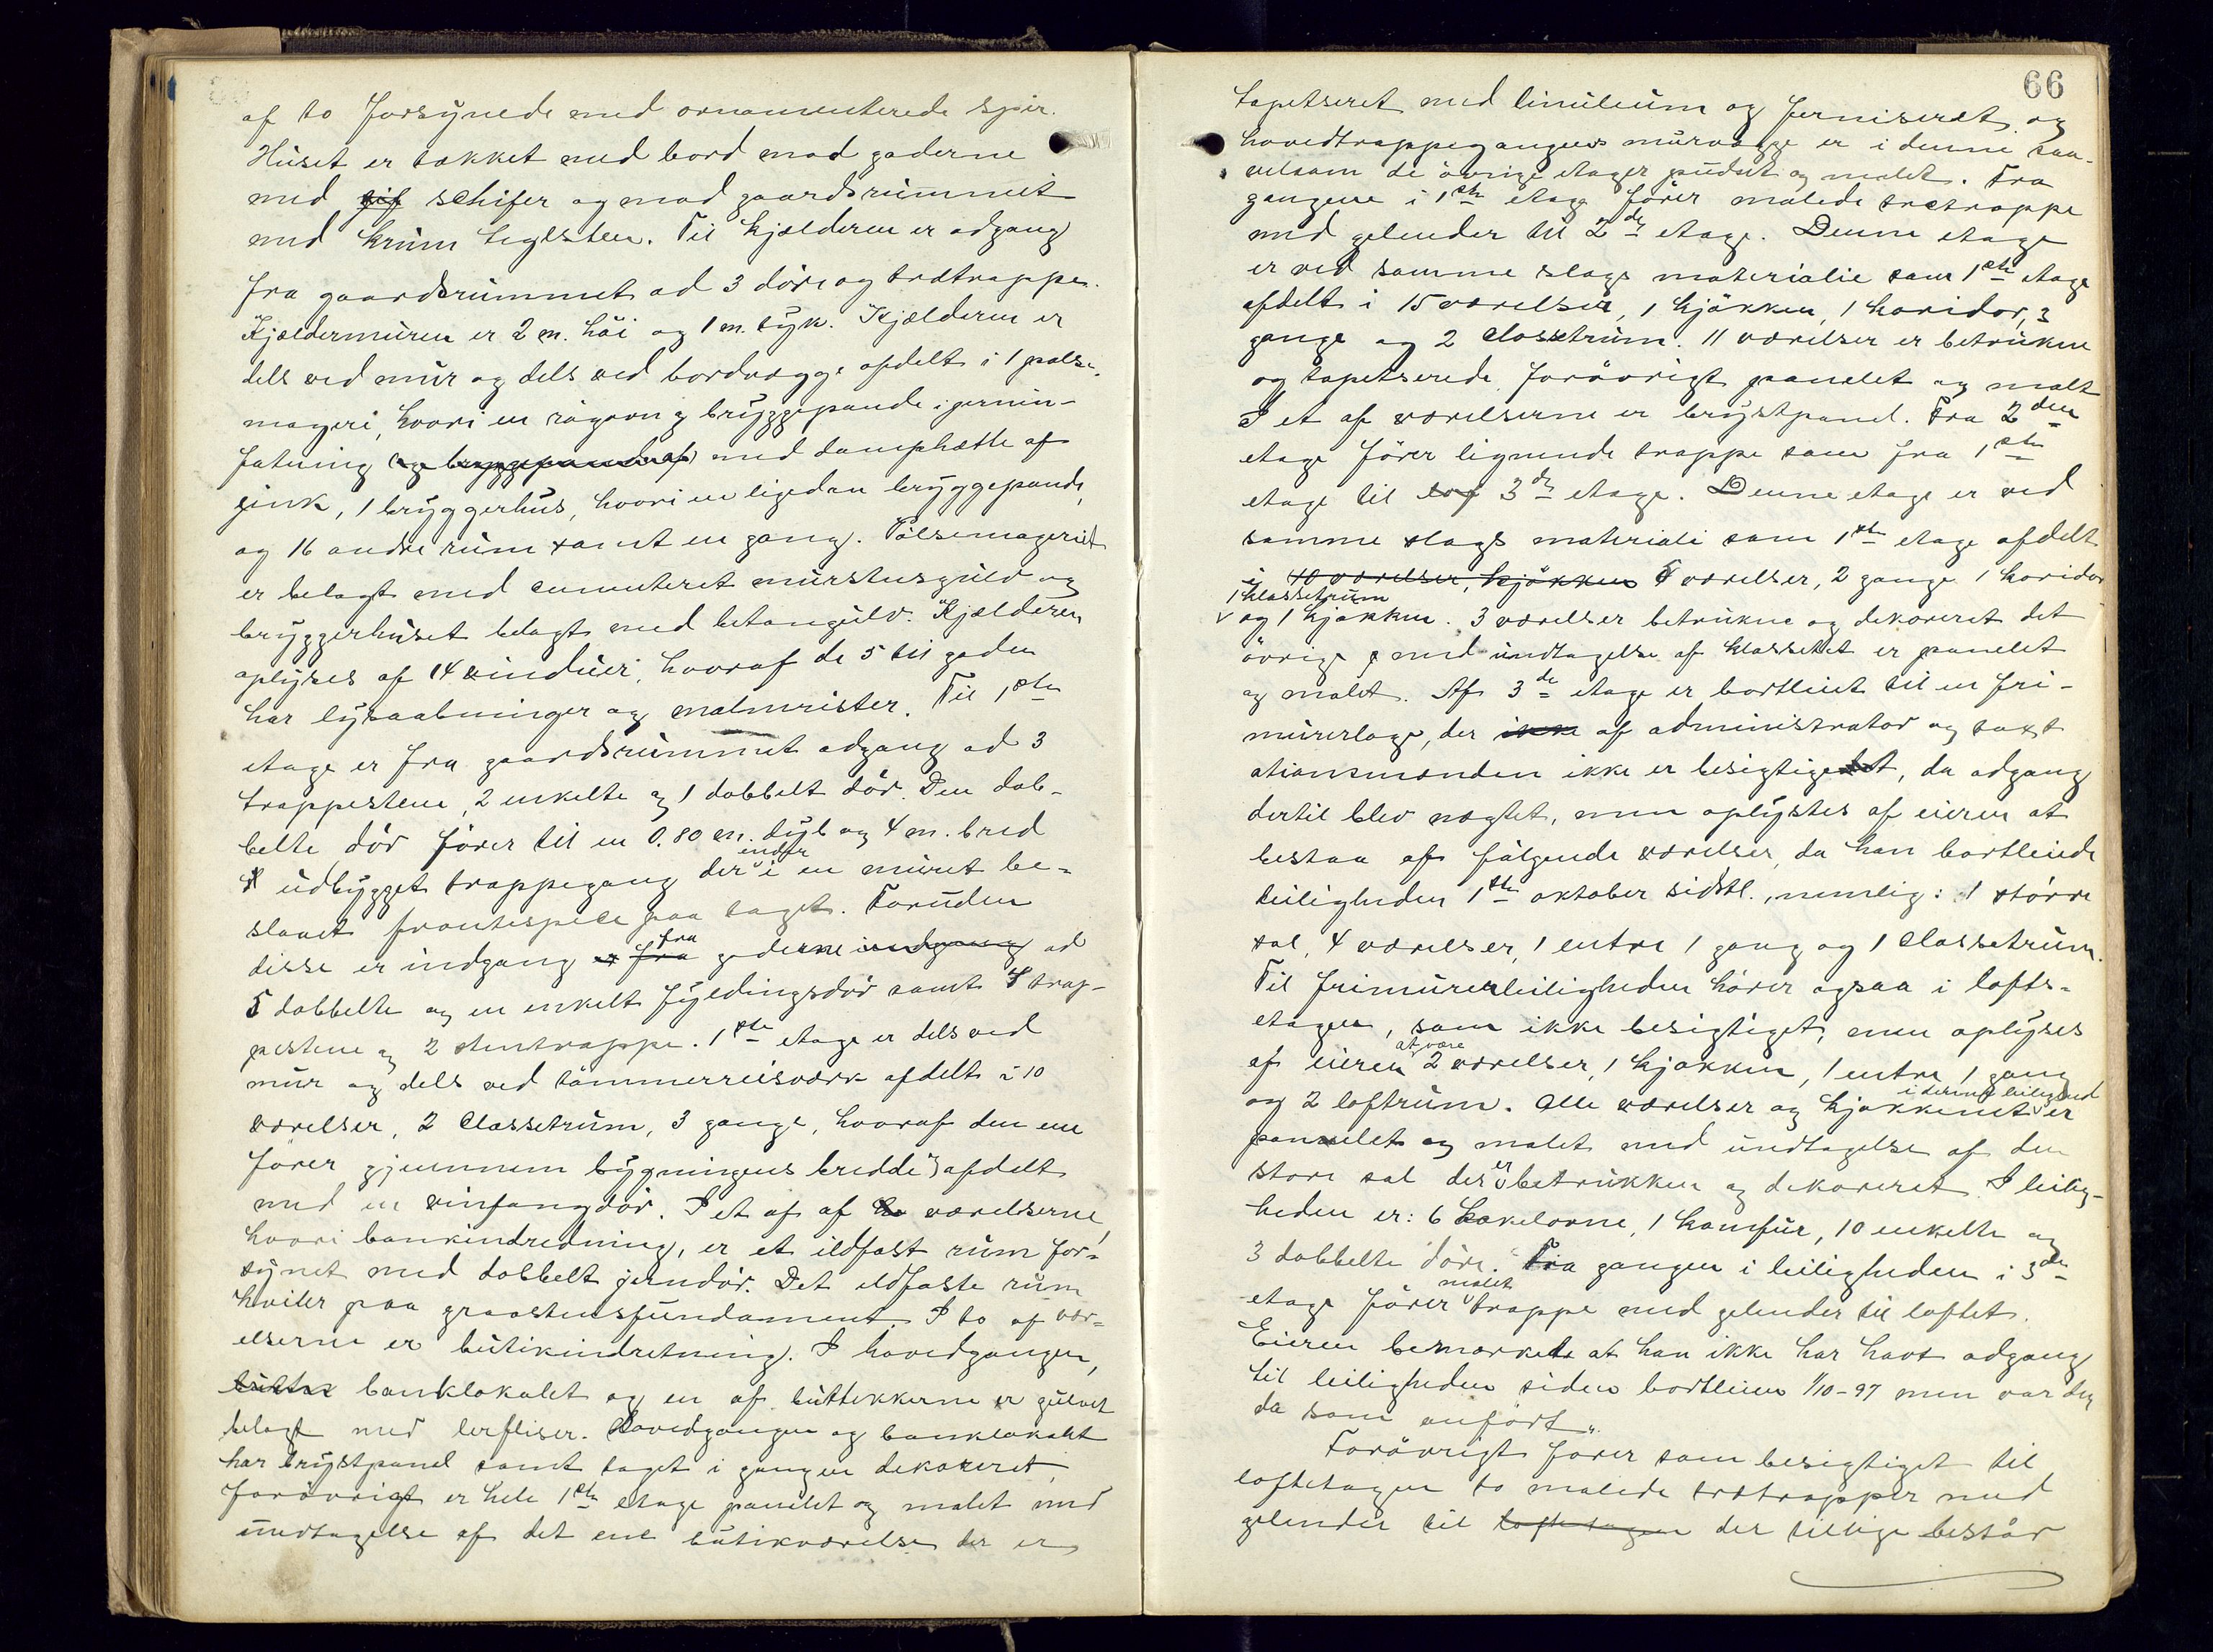 af to forsynede med ornamenterede spir.
Huset er tækket med bord mod gaderne
med schifer og mod gaardsrummet
med krum teglsten. Til kjælderen er adgang
fra gaardsrummet ad 3 döre og trætrappe.
Kjældermuren er 2 m. höi og 1 m. tyk. Kjælderen er
dels ved mur og dels ved bordvægge afdelt i 1 pølse-
mageri, hvori en rögovn og bryggepande i jernin-
fatning (og bryggepande af) med damphætte af
zink, 1 bryggerhus, hvori en ligedan bryggepande,
og 16 andre rum samt en gang. Pölsemageriet
er belagt med cementeret murstensgulv og
bryggerhuset belagt med betongulv. Kjælderen
oplyses af 14 vinduer, hvoraf de 5 til gaden
har lysaabninger og malmrister. Til 1ste
etage er fra gaardsrummet adgang ad 3
trappestene, 2 enkelte og 1 dobbelt dör. Den dob-
belte dör förer til en 0.80 m. dyb og 4 m. bred
udbygget trappegang der ender i en muret be-
slaaet frontespice paa taget. Foruden
disse er indgang er fra fra gaderne indgang ad
5 dobbelte og en enkelt fyldingsdör samt 4 trap-
pestene og 2 stentrappe. 1ste etage er dels ved
mur og dels ved tömmerreisværk afdelt i 10
værelser, 2 Closseetrum, 3 gange, hvoraf den ene
förer gjennem bygningens bredde, afdelt
med en vinfangdör. I et af af værelserne,
hvori bankindredning, er et ildfast rum for-
synet med dobbelt jerndör. Det ildfaste rum
hviler paa graastensfundament. I to af vær-
elserne er butikindretning. I hovedgangen,
banklokalet og en af buttikkerne er gulvet
belagt med lerfliser. Hovedgangen og banklokalet
har brystpanel samt taget i gangen dekoreret,
forövrigt er hele 1ste etage panelet og malet med
undtagelse af det ene butikværelse der er
66
tapetseret med linuleum og ferniseret og
hovedtrappegangens murvægge er i denne saa-
velsom de övrige etager pudset og malet. Fra
gangene i 1ste etage förer malede trætrappe
med gelender til 2de etage. Denne etage
er ved samme slags materialie som 1ste etage
afdelt i 15 værelser, 1 kjökken, 1 koridor, 3
gange og 2 Closseetrum. 11 værelser er betrukne
og tapetserede, forövrigt panelet og malt
I et af værelserne er brystpanel. Fra 2den
etage förer lignende trappe som fra 1ste
etage til 3de etage. Denne etage er ved
samme slags materiali som 1ste etage afdelt
i 10 værelser, kjökken 5 værelser, 2 gange 1 koridor
1 klossetrum
og 1 kjøkken. 3 værelser betrukne og dekoreret det
övrige med undtagelse af klossettet er panelet
og malet. Af 3de etage er bortleiet til en fri-
murerloge, der ikke af administrator og taxt
ationsmænden ikke er besigtiget, da adgang
dertil blev nægtet, men oplystes af eieren at
bestaa af fölgende værelser, da han bortleiede
leiligheden 1ste oktober sidstl., nemlig: 1 större
sal, 4 værelser, 1 entre 1 gang og 1 Clossetrum.
Til frimurerleiligheden hörer ogsaa i lofts-
etagen, som ikke besigtiget, men oplyses
af eieren at være 2 værelser, 1 kjøkken, 1 entre, 1 gang
og 2 loftrum. Alle værelser og kjøkkenet i denne leilighed er
panelet og malet med undtagelse af den
store sal der er betrukken og dekoreret. I leilig-
heden er: 6 kakelovne, 1 komfur, 10 enkelte og
3 dobbelte döre. Fra gangen i leiligheden i 3de
etage förer malet trappe med gelender til loftet.
Eieren bemærkede at han ikke har havt adgang
til leiligheden siden bortleien 1/10-97 men var den
da som anfört".
Forövrigt forer som besigtiget til
loftetagen to malede trætrapper med
gelender til loftetagen der tillige består